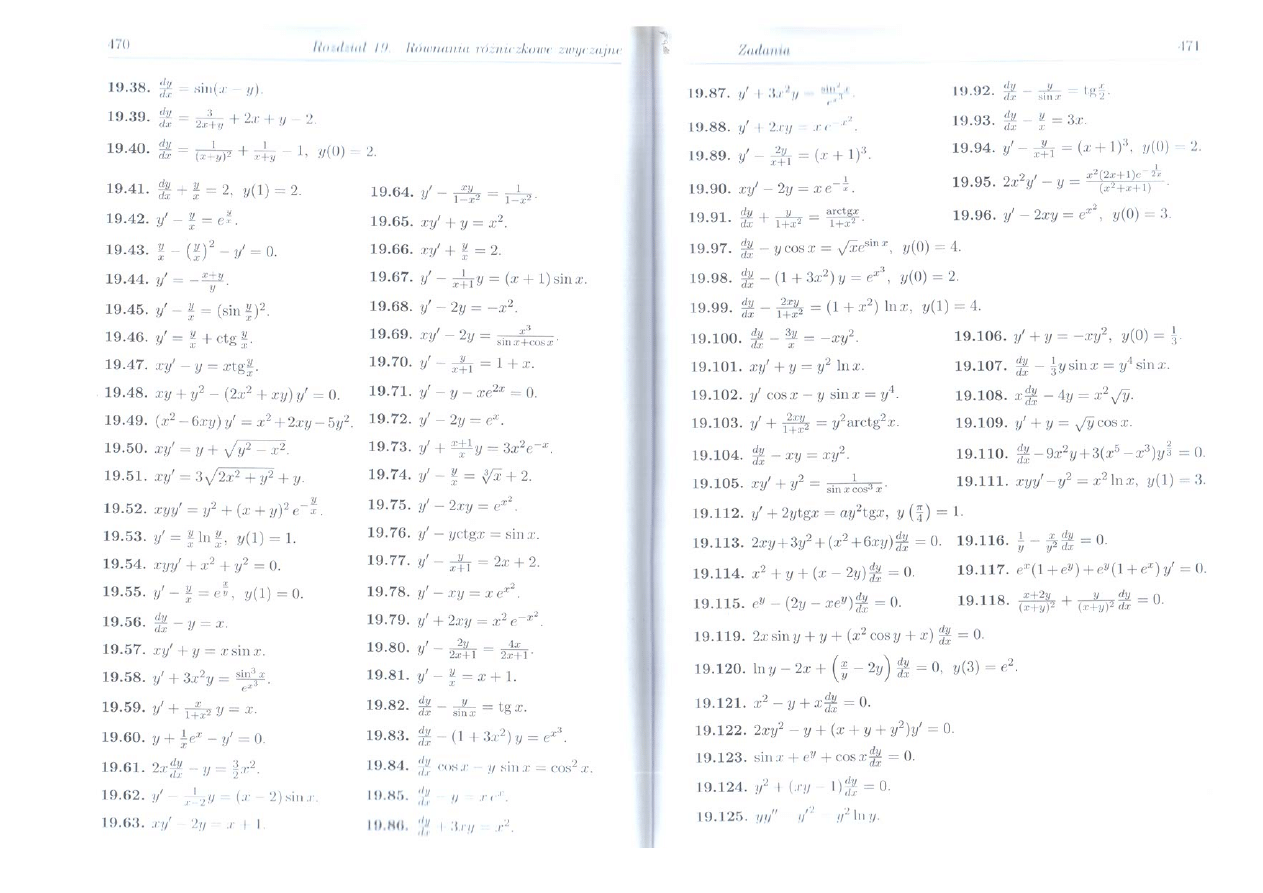 470 Rozdział 19. Równania różniczkowe zwyczajne
19.38. dy/dx = sin(x − y).
19.39. dy/dx = 3/(2x+y) + 2x + y − 2.
19.40. dy/dx = 1/(x+y)² + 1/(x+y) − 1, y(0) = 2.
19.41. dy/dx + y/x = 2, y(1) = 2.
19.42. y′ − y/x = e^(y/x).
19.43. y/x − (y/x)² − y′ = 0.
19.44. y′ = −(x+y)/y.
19.45. y′ − y/x = (sin y/x)².
19.46. y′ = y/x + ctg y/x.
19.47. xy′ − y = xtg y/x.
19.48. xy + y² − (2x² + xy) y′ = 0.
19.49. (x² − 6xy) y′ = x² + 2xy − 5y².
19.50. xy′ = y + √(y² − x²).
19.51. xy′ = 3√(2x² + y²) + y.
19.52. xyy′ = y² + (x + y)² e^(−y/x).
19.53. y′ = y/x ln y/x, y(1) = 1.
19.54. xyy′ + x² + y² = 0.
19.55. y′ − y/x = e^(x/y), y(1) = 0.
19.56. dy/dx − y = x.
19.57. xy′ + y = x sin x.
19.58. y′ + 3x²y = sin³x/e^(x³).
19.59. y′ + x/(1+x²) y = x.
19.60. y + 1/x eˣ − y′ = 0.
19.61. 2x dy/dx − y = 3/2 x².
19.62. y′ − 1/(x−2) y = (x − 2) sin x.
19.63. xy′ − 2y = x + 1.
19.64. y′ − xy/(1−x²) = 1/(1−x²).
19.65. xy′ + y = x².
19.66. xy′ + y/x = 2.
19.67. y′ − 1/(x+1) y = (x + 1) sin x.
19.68. y′ − 2y = −x².
19.69. xy′ − 2y = x³/(sin x+cos x).
19.70. y′ − y/(x+1) = 1 + x.
19.71. y′ − y − xe^(2x) = 0.
19.72. y′ − 2y = eˣ.
19.73. y′ + (x+1)/x y = 3x²e^(−x).
19.74. y′ − y/x = ∛x + 2.
19.75. y′ − 2xy = e^(x²).
19.76. y′ − yctgx = sin x.
19.77. y′ − y/(x+1) = 2x + 2.
19.78. y′ − xy = x e^(x²).
19.79. y′ + 2xy = x² e^(−x²).
19.80. y′ − 2y/(2x+1) = 4x/(2x+1).
19.81. y′ − y/x = x + 1.
19.82. dy/dx − y/sin x = tg x.
19.83. dy/dx − (1 + 3x²) y = e^(x³).
19.84. dy/dx cos x − y sin x = cos² x.
19.85. dy/dx − y = xeˣ.
19.86. dy/dx + 3xy = x².
Zadania 471
19.87. y′ + 3x²y =
19.88. y′ + 2xy = xe^(−x²).
19.89. y′ − 2y/(x+1) = (x + 1)³.
19.90. xy′ − 2y = x e^(−1/x).
19.91. dy/dx + y/(1+x²) = arctgx/(1+x²).
19.92. dy/dx − y/sin x = tg x/2.
19.93. dy/dx − y/x = 3x.
19.94. y′ − y/(x+1) = (x + 1)³, y(0) = 2.
19.95. 2x²y′ − y = x²(2x+1)e^(−1/2x)/(x²+x+1).
19.96. y′ − 2xy = e^(x²), y(0) = 3.
19.97. dy/dx − y cos x = √x e^(sin x), y(0) = 4.
19.98. dy/dx − (1 + 3x²) y = e^(x³), y(0) = 2.
19.99. dy/dx − 2xy/(1+x²) = (1 + x²) ln x, y(1) = 4.
19.100. dy/dx − 3y/x = −xy².
19.101. xy′ + y = y² ln x.
19.102. y′ cos x − y sin x = y⁴.
19.103. y′ + 2xy/(1+x²) = y²arctg²x.
19.104. dy/dx − xy = xy².
19.105. xy′ + y² = 1/(sin x cos³ x).
19.106. y′ + y = −xy², y(0) = 1/3.
19.107. dy/dx − 1/3 y sin x = y⁴ sin x.
19.108. x dy/dx − 4y = x²√y.
19.109. y′ + y = √y cos x.
19.110. dy/dx − 9x²y + 3(x⁵ − x³)y^(2/3) = 0.
19.111. xyy′ − y² = x² ln x, y(1) = 3.
19.112. y′ + 2ytgx = ay²tgx, y(π/4) = 1.
19.113. 2xy + 3y² + (x² + 6xy) dy/dx = 0.
19.114. x² + y + (x − 2y) dy/dx = 0.
19.115. e^y − (2y − xe^y) dy/dx = 0.
19.116. 1/y − x/y² dy/dx = 0.
19.117. eˣ(1 + e^y) + e^y(1 + eˣ) y′ = 0.
19.118. (x+2y)/(x+y)² + y/(x+y)² dy/dx = 0.
19.119. 2x sin y + y + (x² cos y + x) dy/dx = 0.
19.120. ln y − 2x + (x/y − 2y) dy/dx = 0, y(3) = e².
19.121. x² − y + x dy/dx = 0.
19.122. 2xy² − y + (x + y + y²)y′ = 0.
19.123. sin x + e^y + cos x dy/dx = 0.
19.124. y² + (xy − 1) dy/dx = 0.
19.125. yy″ − y′² = y² ln y.